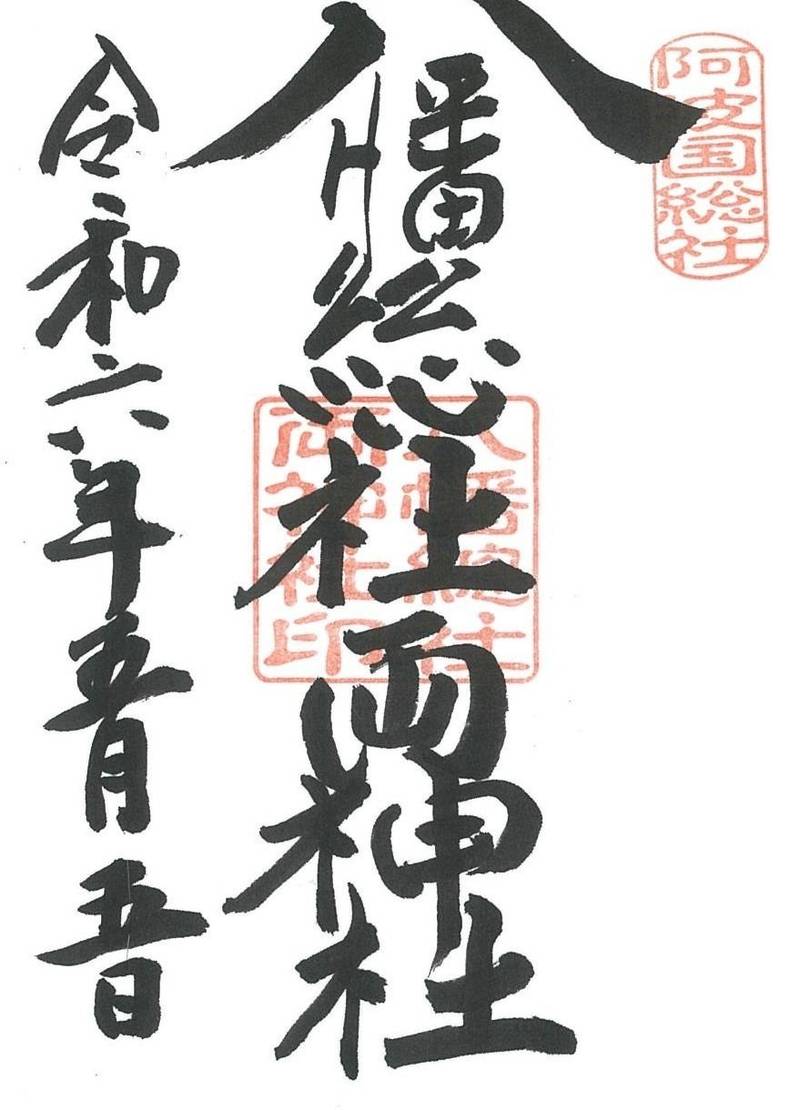 阿波国総社
八幡総社両神社
八幡總社
両神社印
令和六年五月五日